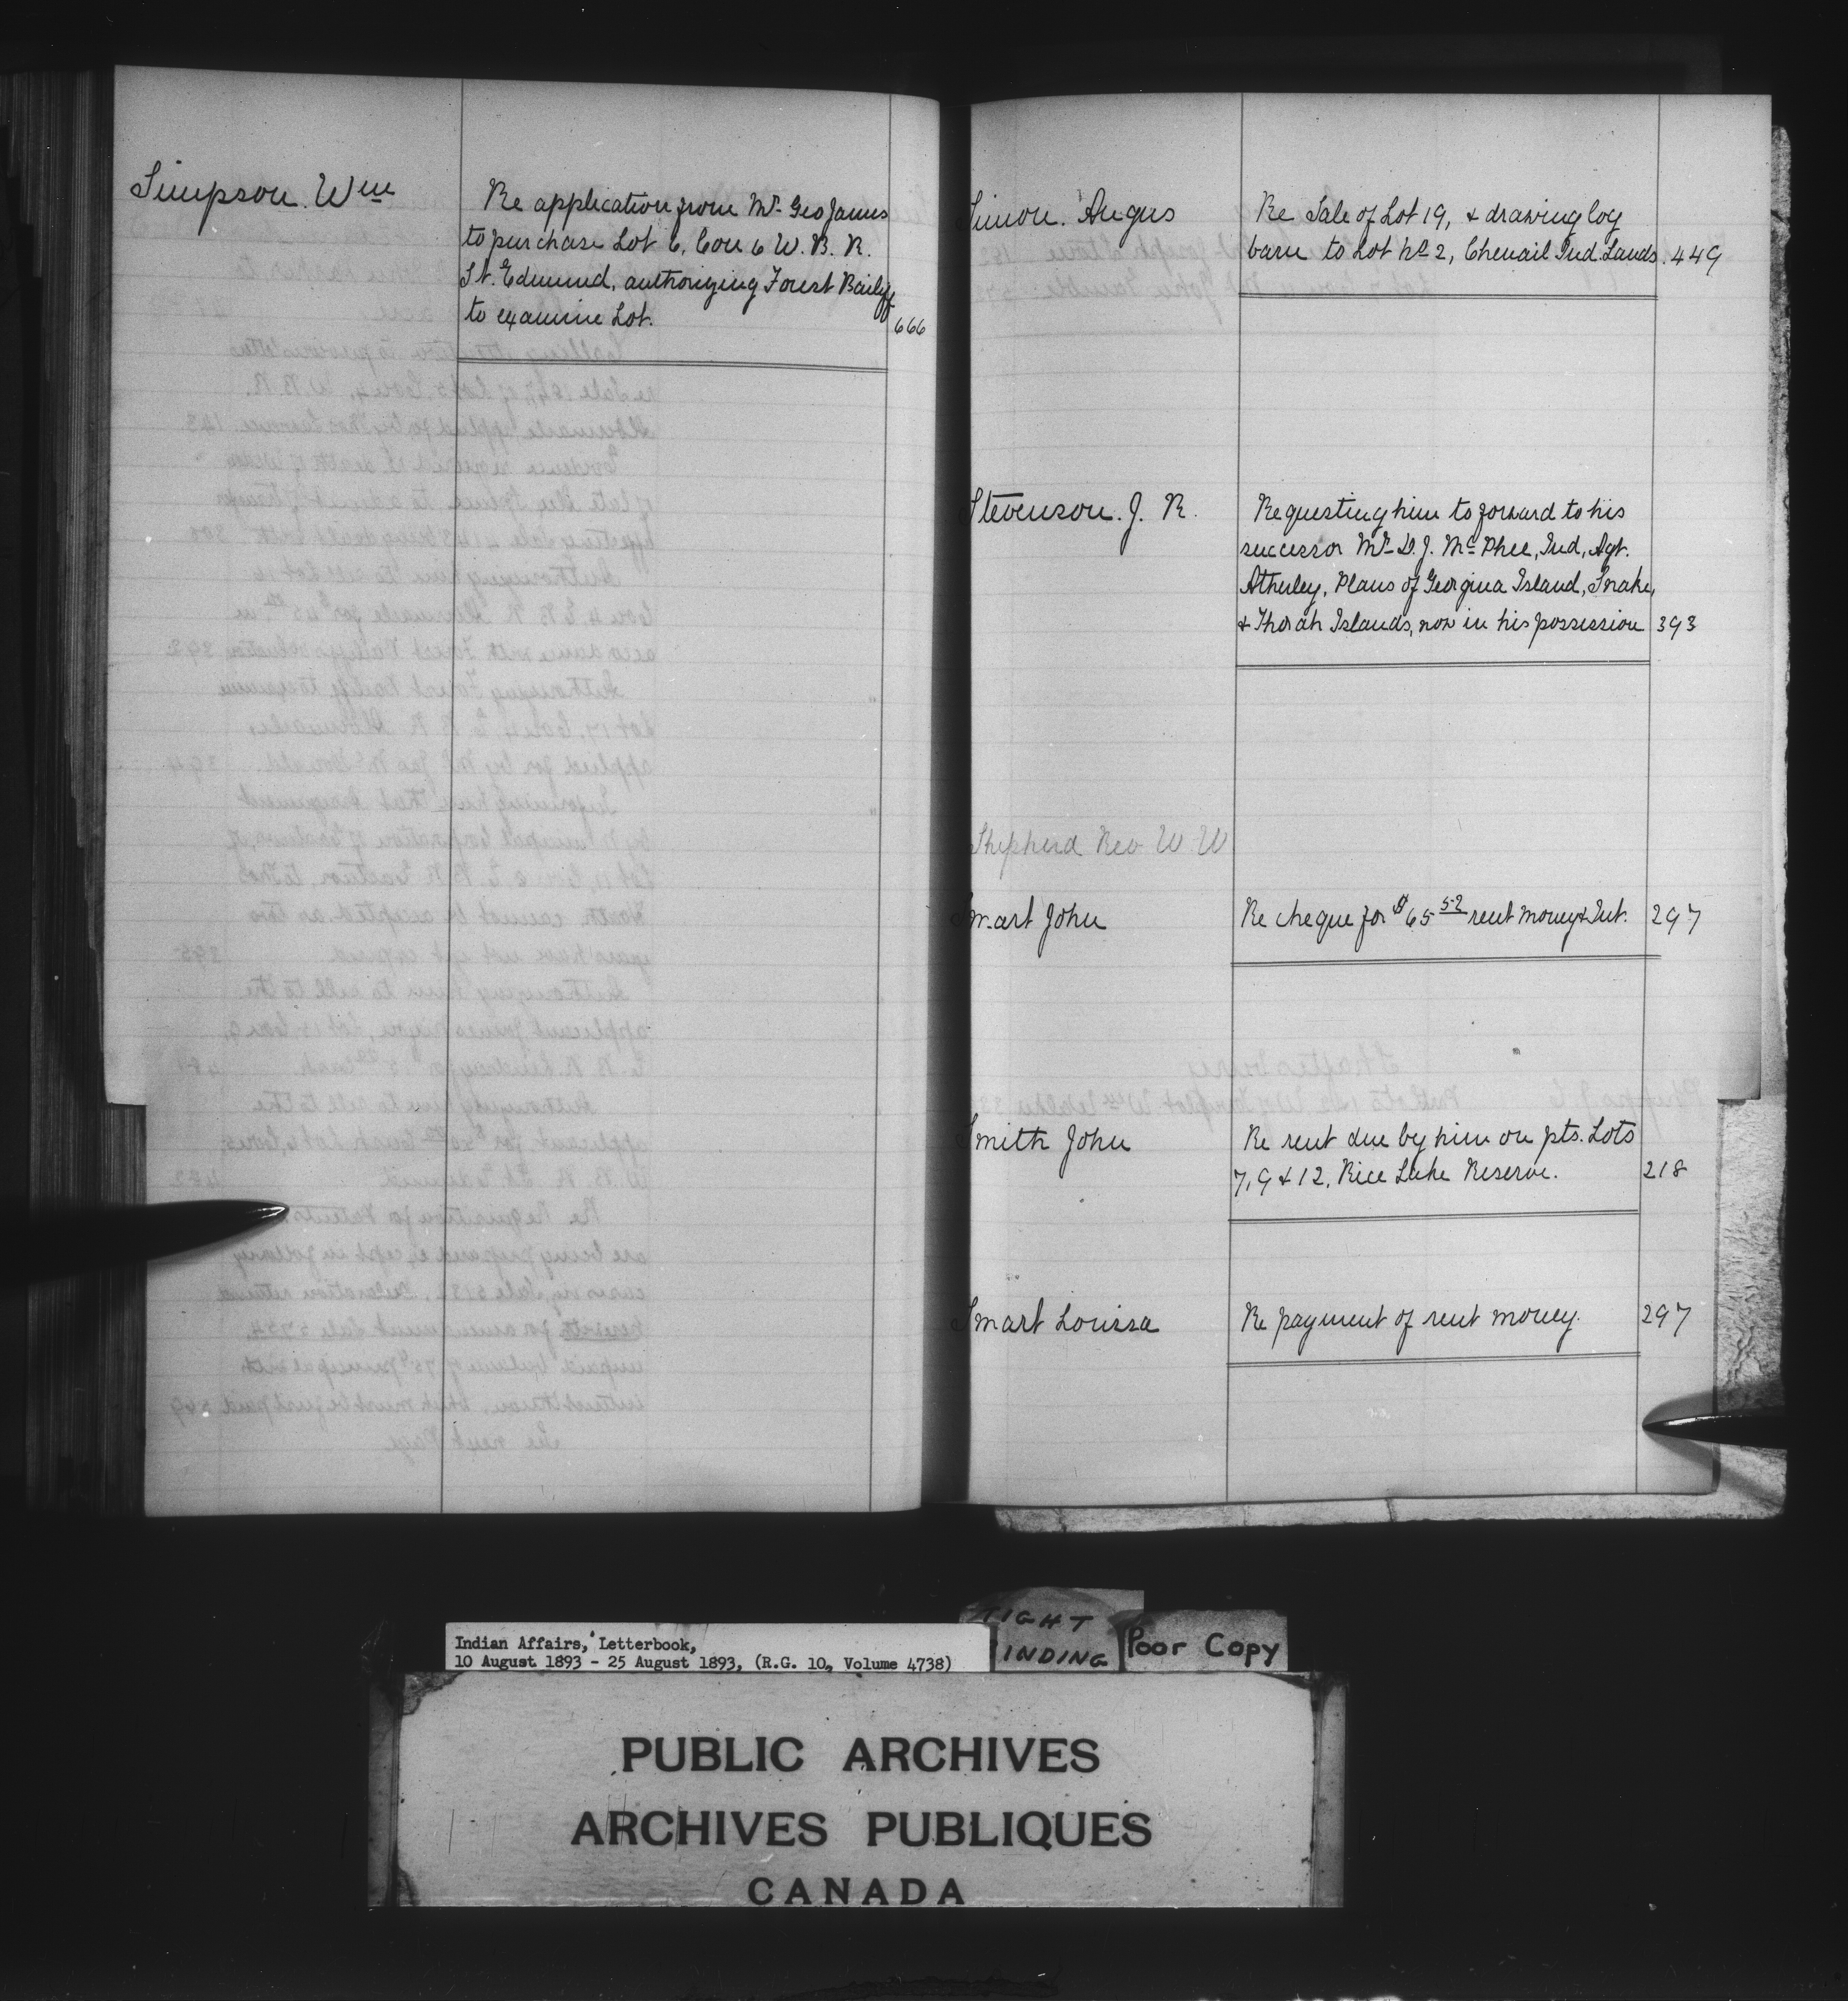 Simpson. Wm
Re application from Mr. Geo James
to purchase Lot 6, Con 6 W. B. R.
St. Edmund, authorizing Forest Bailiff
to examine Lot. 666
Simon. Angus
Re Sale of Lot 19, & drawing log
barn to Lot No 2, Chenail Ind. Lands. 449
Stevenson. J. R.
Requesting him to forward to his
successor Mr. D. J. McPhee, Ind, Agt.
Atherley, Plans of Georgina Island, Snake,
& Thorah Islands, now in his possession 393
Shepherd Rev W W
Smart John
Re cheque for $65 52 rent money & Int. 297
Smith John
Re rent due by him on pts. Lots
7, 9 & 12, Rice Lake Reserve. 218
Smart Louissa
Re payment of rent money. 297
TIGHT
BINDING
Poor Copy
Indian Affairs, Letterbook,
10 August 1893 - 25 August 1893, (R.G. 10, Volume 4738)
PUBLIC ARCHIVES
ARCHIVES PUBLIQUES
CANADA